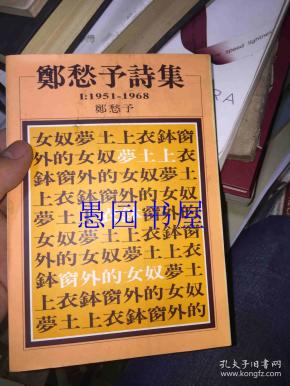 鄭愁予詩集
I:1951-1968
鄭愁予
女奴夢土上衣鉢窗
外的女奴夢土上衣
鉢窗外的女奴夢土
上衣鉢窗外的女奴
夢土上衣鉢窗外的
女奴夢土上衣鉢窗
外的女奴夢土上衣
鉢窗外的女奴夢土
上衣鉢窗外的女奴
夢土上衣鉢窗外的
愚园书屋
speed lightness
RA
孔夫子旧书网